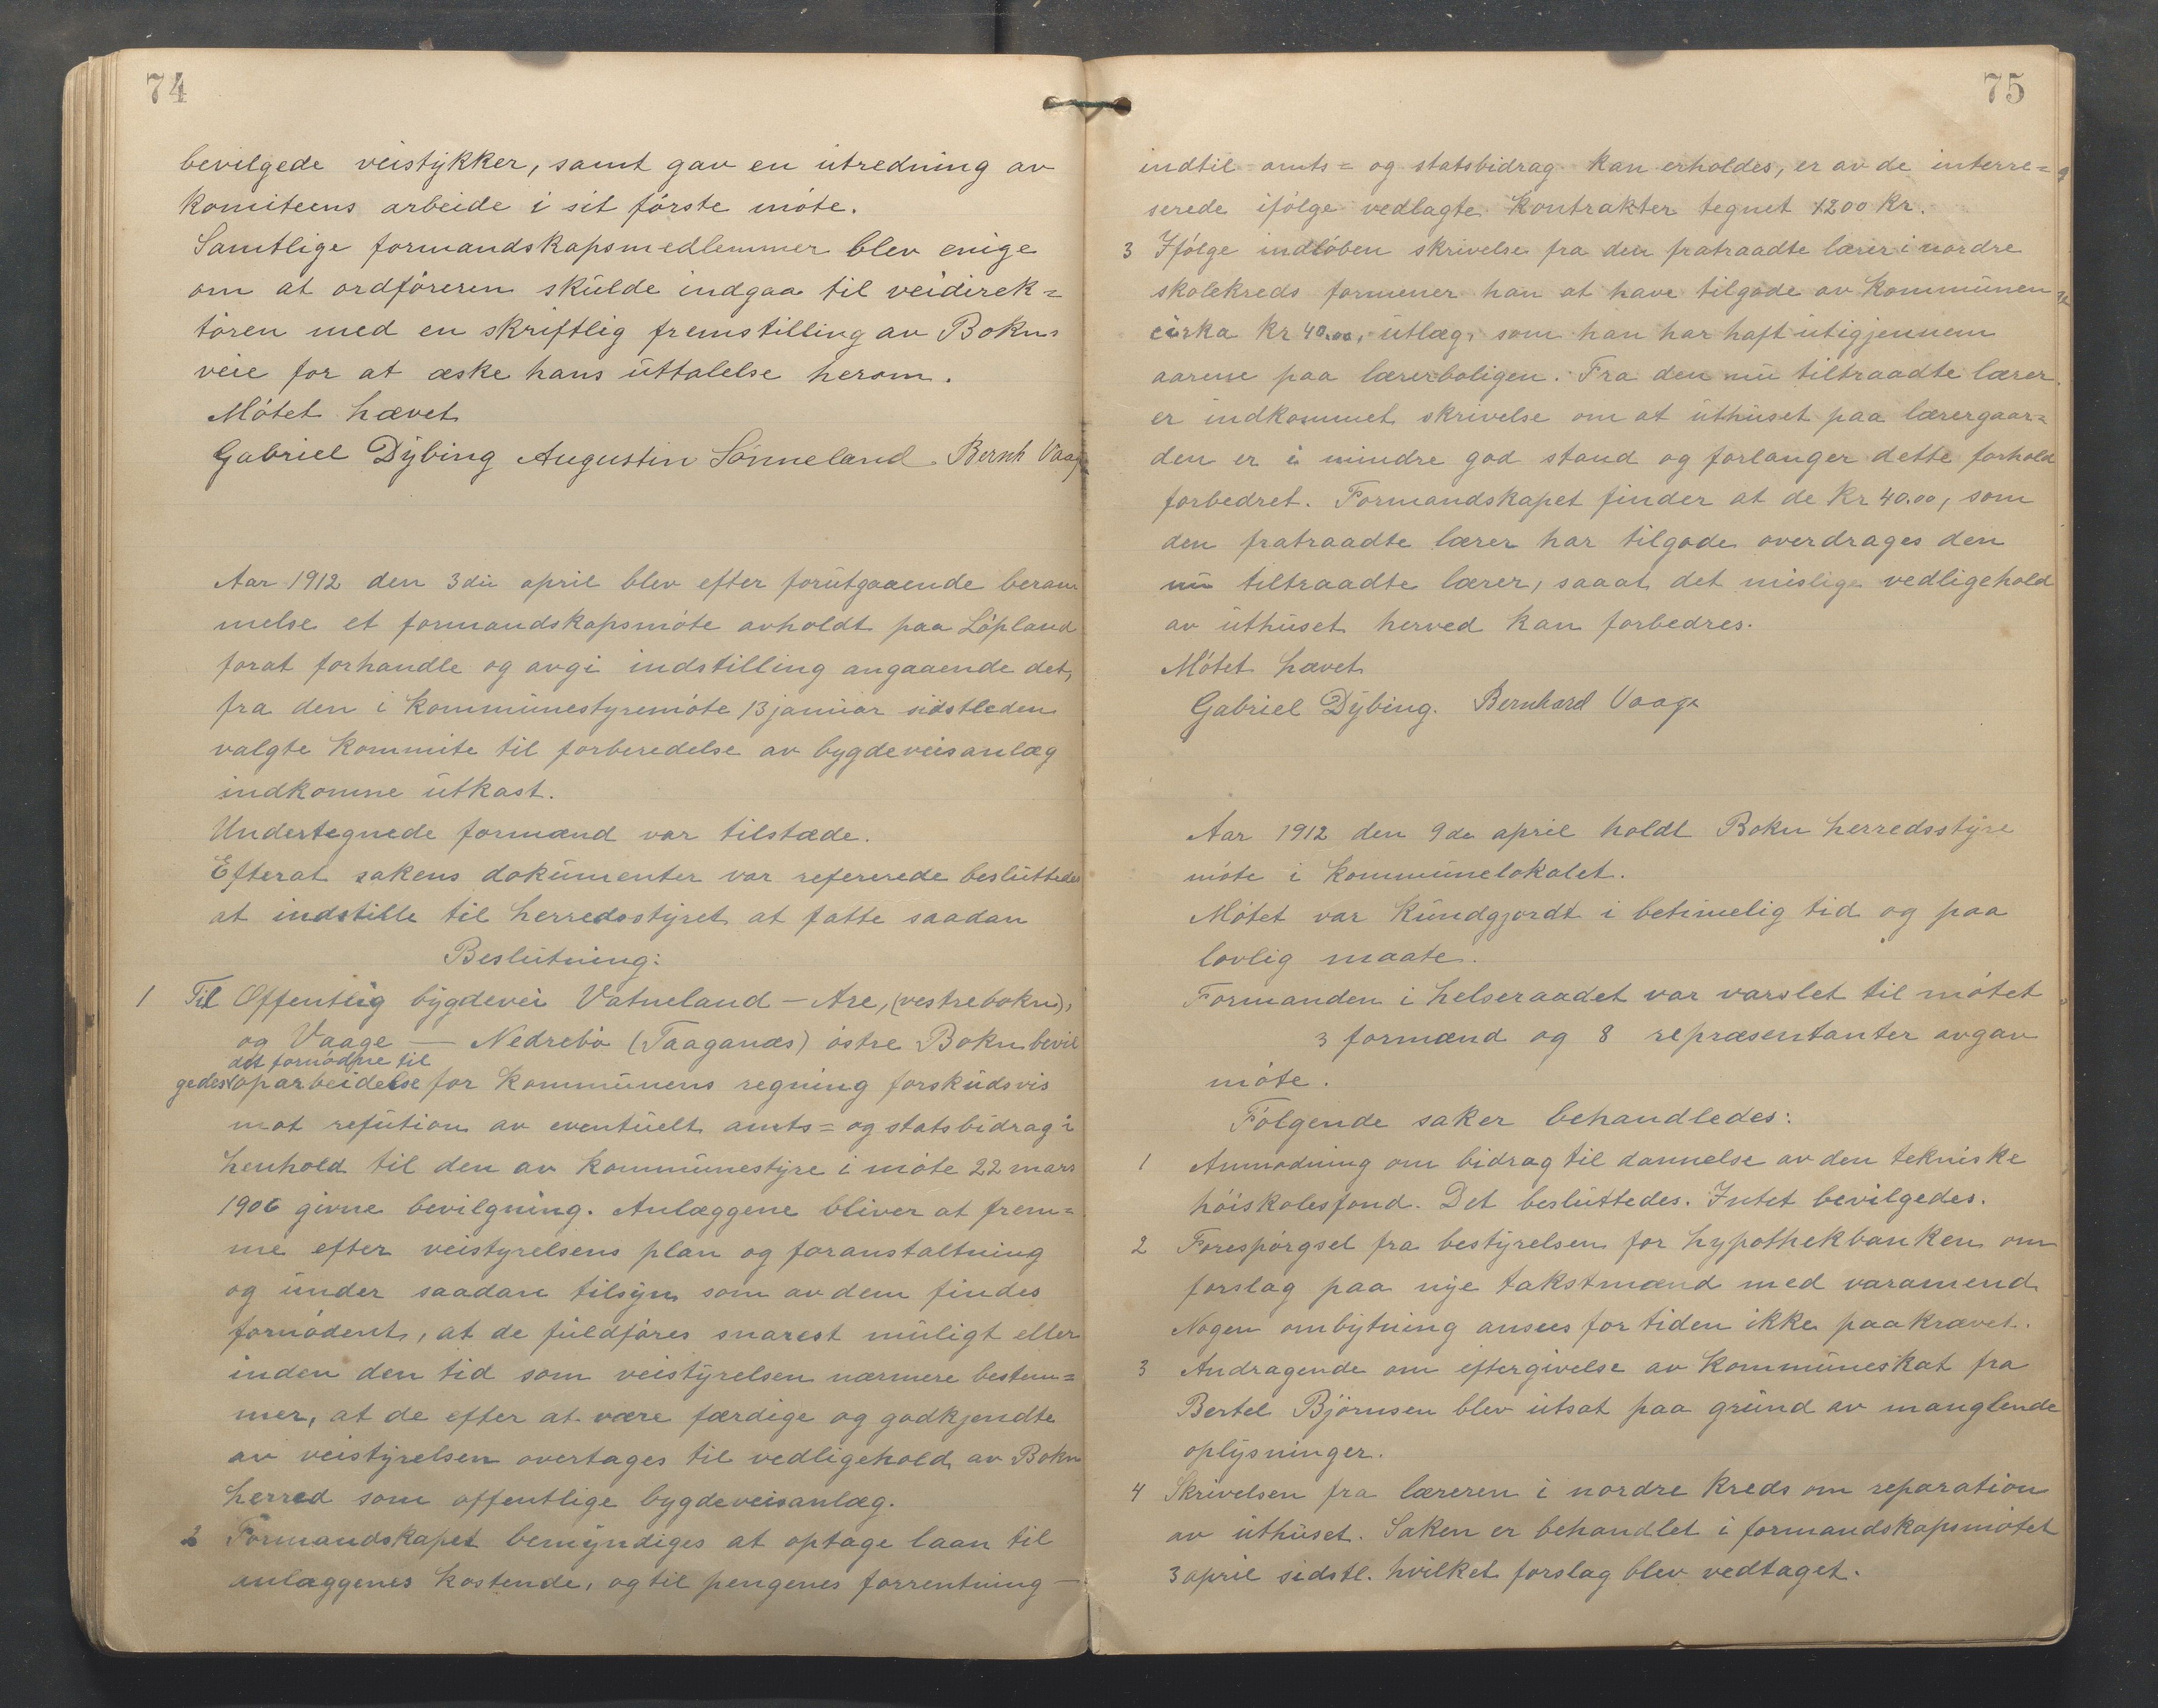 74
bevilgede veistykker, samt gav en utredning av
komiteens arbeide i sit første møte.
Samtlige formandskapsmedlemmer blev enige
om at ordføreren skulde indgaa til veidirek=
tøren med en skriftlig fremstilling av Bokns
veie for at æske hans uttalelse herom.
Møtet hævet
Gabriel Dybing Augustin Sønneland. Bernh Vaage
Aar 1912 den 3die april blev efter forutgaaende beram
melse et formandskapsmøte avholdt paa Løpland
forat forhandle og avgi indstilling angaaende det,
fra den i kommunestyremøte 13 januar sidstleden
valgte kommite til forberedelse av bygdeveisanlæg
indkomne utkast.
Undertegnede formænd var tilstæde.
Efterat sakens dokumenter var refererede besluttedes
at indstille til herredsstyret at fatte saadan
Beslutning:
1 Til Offentlig bygdevei Vatneland - Are, (vestrebokn),
og Vaage — Nedrebø (Taaganæs) østre Bokn bevil
det fornødne til
gedes oparbeidelse for kommunens regning forskudsvis
mot refution av eventuelt amts= og statsbidrag i
henhold til den av kommunestyre i møte 22 mars
1906 givne bevilgning. Anlæggene bliver at frem=
me efter veistyrelsens plan og foranstaltning
og under saadan tilsyn som av dem findes
fornødent, at de fuldføres snarest muligt eller
inden den tid som veistyrelsen nærmere bestem=
mer, at de efter at være færdige og godkjendte
av veistyrelsen overtages til vedligehold av Bokn
herred som offentlige bygdeveisanlæg.
2 Formandskapet bemyndiges at optage laan til
anlæggenes kostende, og til pengenes forrentning —
75
indtil amts= og statsbidrag kan erholdes, er av de interre=
serede ifølge vedlagte kontrakter tegnet 1200 kr.
3 Ifølge indløben skrivelse fra den fratraadte lærer i nordre
skolekreds formener han at have tilgode av kommunen
cirka kr 40.00, utlæg, som han har haft utigjennem
aarene paa lærerboligen. Fra den nu tiltraadte lærer
er indkommet skrivelse om at uthuset paa lærergaar=
den er i mindre god stand og forlanger dette forhold
forbedret. Formandskapet finder at de kr 40.00, som
den fratraadte lærer har tilgode overdrages den
nu tiltraadte lærer, saaat det mislige vedligehold
av uthuset herved kan forbedres.
Møtet hævet
Gabriel Dybing. Bernhard Vaage
Aar 1912 den 9de april holdt Bokn herredsstyre
møte i kommunelokalet.
Møtet var kundgjordt i betimelig tid og paa
lovlig maate.
Formanden i helseraadet var varslet til møtet
3 formænd og 8 repræsentanter avgav
møte.
Følgende saker behandledes:
1 Anmodning om bidrag til dannelse av den tekniske
høiskolesfond. Det besluttedes. Intet bevilgedes.
2 Forespørgsel fra bestyrelsen for hypothekbanken om
forslag paa nye takstmænd med varamend
Nogen ombytning ansees for tiden ikke paakrævet.
3 Andragende om eftergivelse av kommuneskat fra
Bertel Bjørnsen blev utsat paa grund av manglende
oplysninger.
4 Skrivelsen fra læreren i nordre kreds om reparation
av uthuset. Saken er behandlet i formandskapsmøtet
3 april sidstl. hvilket forslag blev vedtaget.